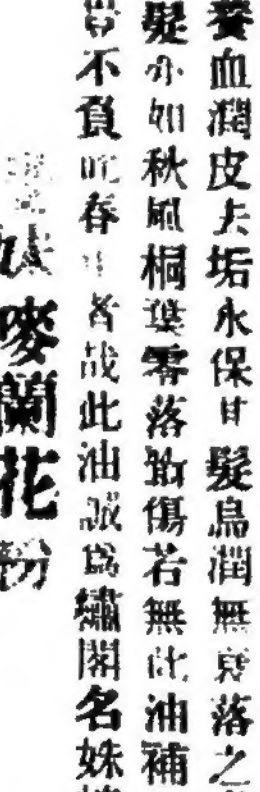 養血潤皮去垢永保其髮烏潤無衰落之
髮亦如秋風桐葉零落致傷若無此油補
豈不負此春 者哉此油誠為繡閣名姝
妹麥蘭花粉